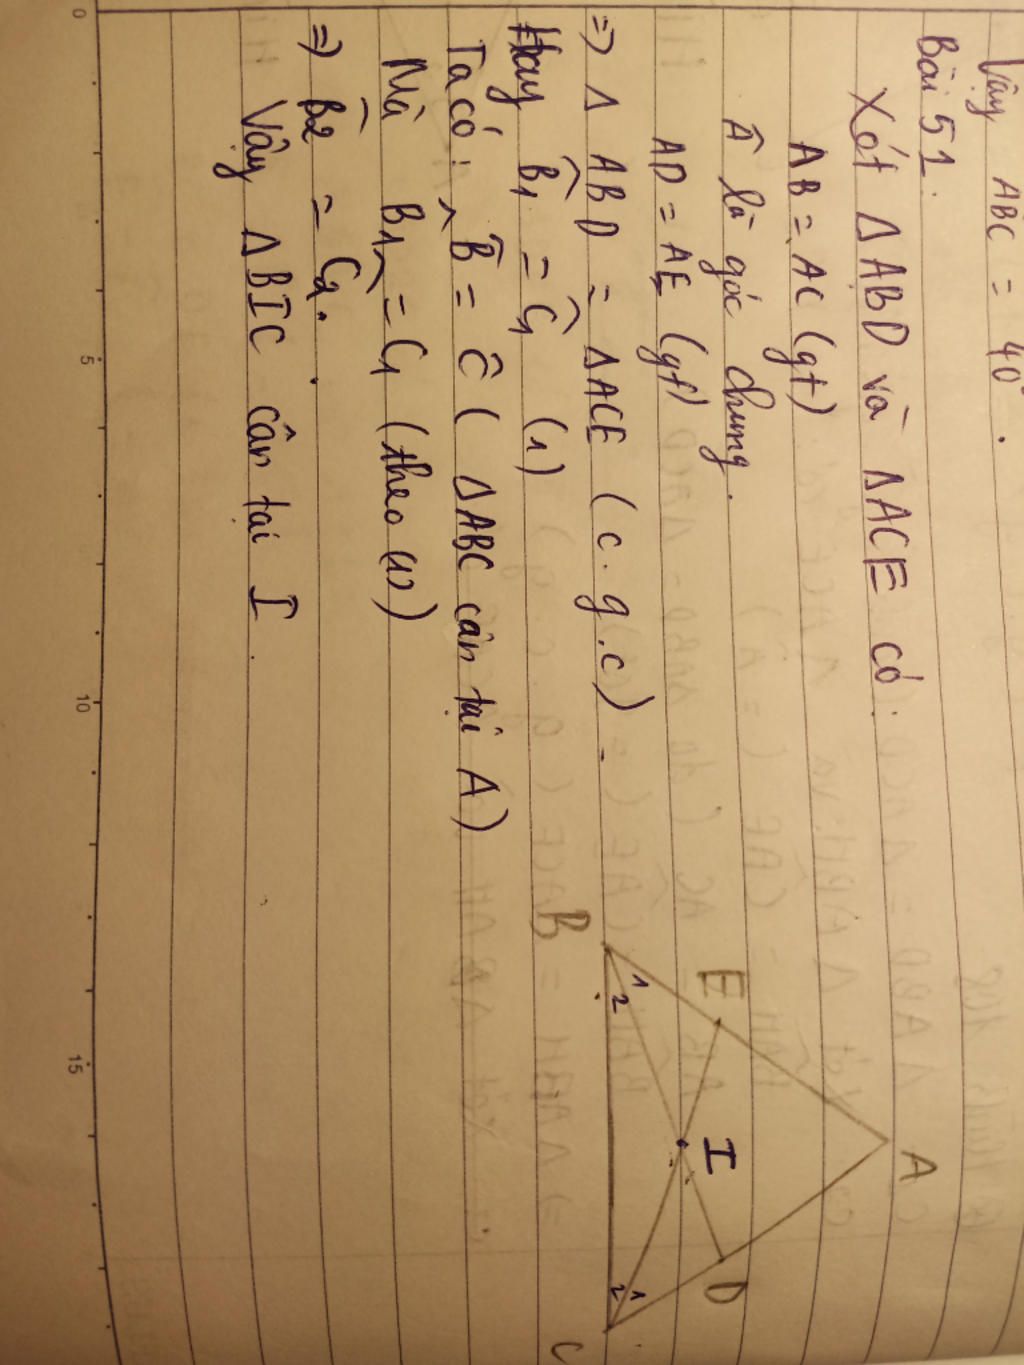 Vậy ABC = 40°.
Bài 51:
Xét Δ ABD và ΔACE có:
AB = AC (gt)
Â là góc chung.
AD = AE (gt)
=> Δ ABD = ΔACE (c.g.c).
Hay B̂1 = Ĉ1 (1)
Ta có: B̂ = Ĉ ( ΔABC cân tại A)
Mà B̂1 = C1 (theo (1))
=> B̂2 = Ĉ2.
Vậy ΔBIC cân tại I.
A
E
I
D
B
1
2
1
2
C
0
5
10
15